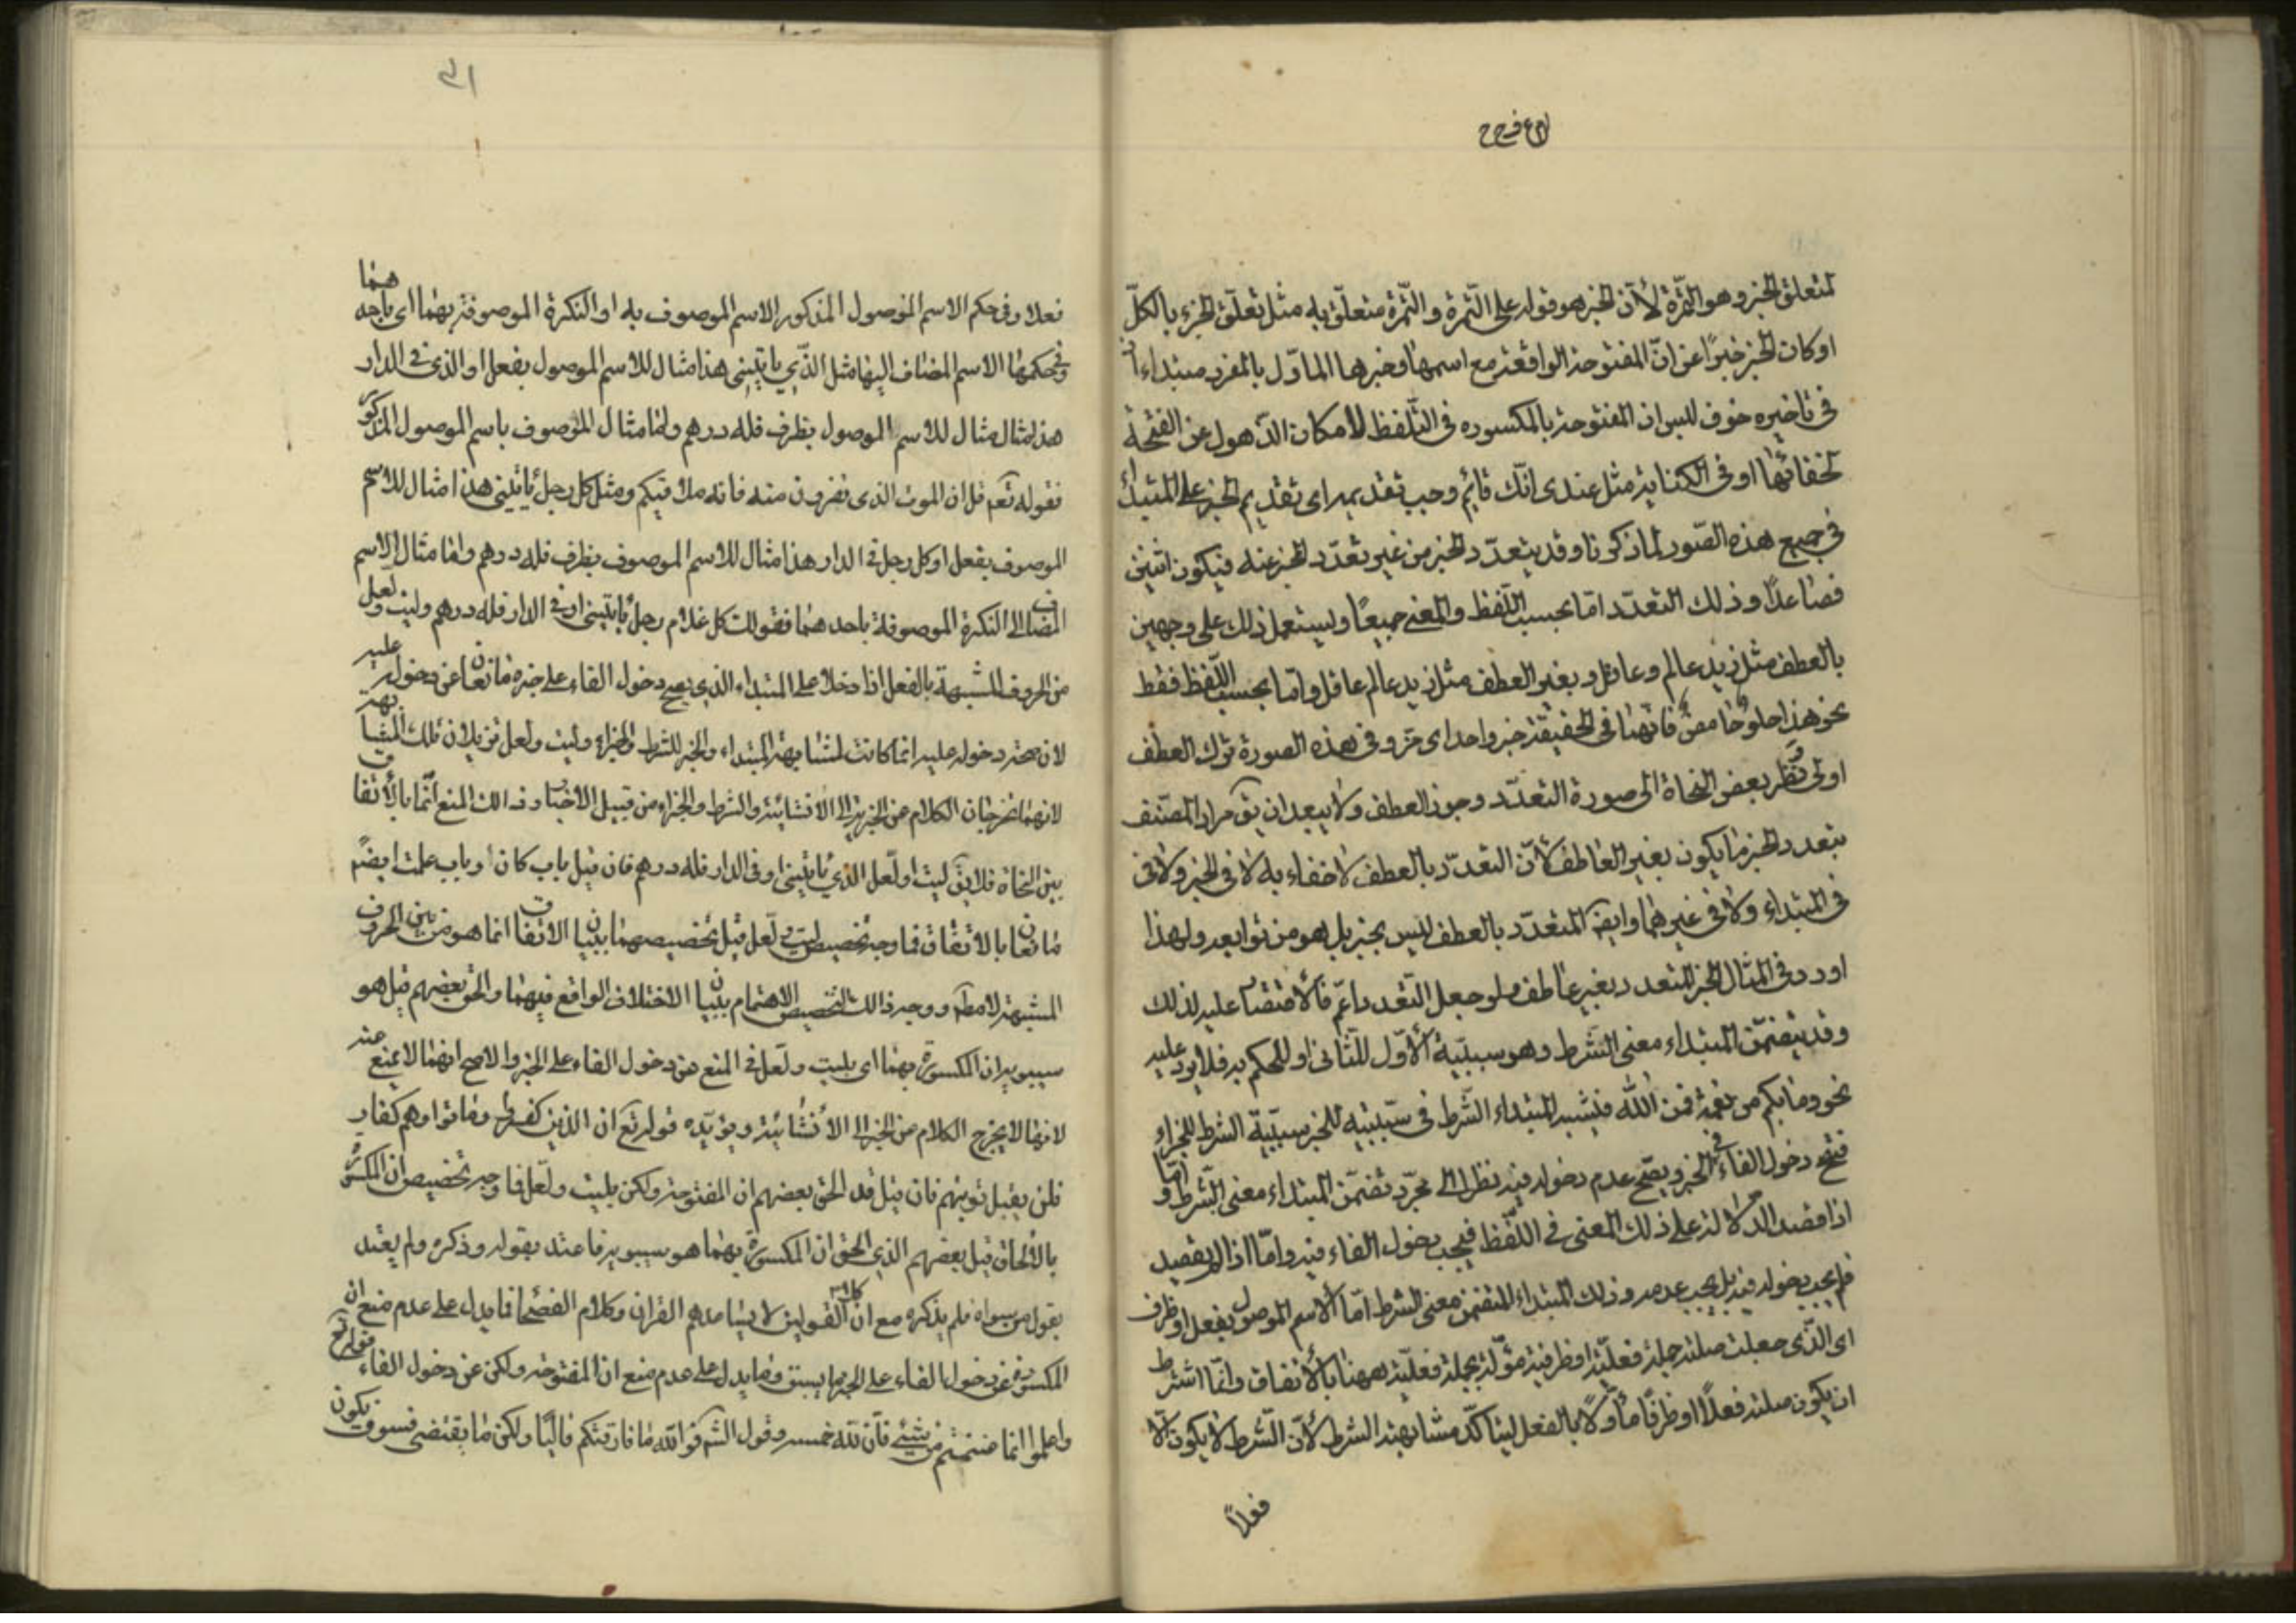 لمتعلق الخبر وهو التمرة لأن الخبر هو قوله على التمرة والتمرة متعلق به مثل تعلق الجزء بالكل
او كان الخبر خبرا عن ان المفتوحة الواقعة مع اسمها وخبرها المأول بالمفرد مبتداء اذ
فى تاخيره خوف لبس ان المفتوحة بالمكسوره فى التلفظ لامكان الذهول عن الفتحة
لخفائها او فى الكتابة مثل عندى انك قائم وجب تقديمه اى تقديم الخبر على المبتدأ
فى جميع هذه الصور لما ذكرنا وقد يتعدد الخبر من غير تعدد المخبر عنه فيكون اثنين
فصاعدا وذلك التعدد اما بحسب اللفظ والمعنى جميعا ويستعمل ذلك على وجهين
بالعطف مثل زيد عالم وعاقل وبغير العطف مثل زيد عالم عاقل واما بحسب اللفظ فقط
نحو هذا حلو حامض فانهما فى الحقيقة خبر واحد اى مز وفى هذه الصورة ترك العطف
اولى ونظر بعض النحاة الى صورة التعدد وجوز العطف ولا يبعد ان يق مراد المصنف
بتعدد الخبر ما يكون بغير العاطف لأن التعدد بالعطف لا خفاء به لا فى الخبر ولا فى
فى المبتداء ولا فى غيرهما وايضا المتعدد بالعطف ليس بخبر بل هو من توابعه ولهذا
اورد فى المثال الخبر المتعدد بغير عاطف ولو جعل التعدد اعم فالاقتصار عليه لذلك
وقد يتضمن المبتداء معنى الشرط وهو سببية الأول للثانى او للحكم به فلا يرد عليه
نحو وما بكم من نعمة فمن الله فيشبه المبتداء الشرط فى سببيته للخبر سببية الشرط للجزاء
فيصح دخول الفاء فى الخبر ويصح عدم دخوله فيه نظرا الى مجرد تضمن المبتداء معنى الشرط واما
اذا قصد الدلالة على ذلك المعنى فى اللفظ فيجب دخول الفاء فيه واما اذا لم يقصد
فلم يجب دخوله فيه بل يجب عدمه وذلك المبتداء المتضمن معنى الشرط اما الاسم الموصول بفعل او ظرف
اى الذى جعلت صلته جملة فعلية او ظرفية مؤلة بجملة فعلية ههنا بالأتفاق وانما اشترط
ان يكون صلته فعلا او ظرفا مأولا بالفعل ليتاكد مشابهته الشرط لأن الشرط لا يكون الا
فعلا
فعلا وفى حكم الاسم الموصول المذكور الاسم الموصوف به او النكرة الموصوفة بهما اى باحدهما
وفى حكمها الاسم المضاف اليها مثل الذى ياتينى هذا مثال للاسم الموصول بفعل او الذى فى الدار
هذا مثال مثال للاسم الموصول بظرف فله درهم واما مثال الموصوف باسم الموصول المذكور
فقوله تعم قل ان الموت الذى تفرون منه فانه ملاقيكم ومثل كل رجل ياتينى هذا مثال للاسم
الموصوف بفعل او كل رجل فى الدار هذا مثال للاسم الموصوف بظرف فله درهم واما مثال الاسم
المضاف الى النكرة الموصوفة باحدهما فقولك كل غلام رجل ياتينى او فى الدار فله درهم وليت ولعل
من الحروف المشبهة بالفعل اذا دخلا على المبتداء الذى يصح دخول الفاء على خبره مانعان عن دخوله عليه
لان صحة دخوله عليه انما كانت لمشابهة المبتداء والخبر للشرط والجزاء وليت ولعل تزيلان تلك المشابهة
لانهما تخرجان الكلام من الخبرية الى الانشائية والشرط والجزاء من قبيل الاخبار وذلك المنع انما بالأتفاق
بين النحاة فلا يق ليت او لعل الذى ياتينى او فى الدار فله درهم فان قيل باب كان او باب علمت ايضا
مانعان بالاتفاق فما وجه تخصيص ليت ولعل قيل تخصيصهما ببيان الاتفاق انما هو من بين الحروف
المشبهة لا مطلقا ووجه ذلك التخصيص الاهتمام ببيان الاختلاف الواقع فيهما والحق بعضهم قيل هو
سيبويه ان المكسورة بهما اى بليت ولعل فى المنع من دخول الفاء على الخبر والاصح انها لا تمنع عنه
لانها لا يخرج الكلام من الخبر الى الأنشائية ويؤيده قوله تع ان الذين كفروا وماتوا وهم كفار
فلن يقبل توبتهم فان قيل قد الحق بعضهم ان المفتوحة ولكن بليت ولعل فما وجه تخصيص ان المكسورة
بالألحاق قيل بعضهم الذى الحق ان المكسورة بهما هو سيبويه فاعتد بقوله وذكره ولم يعتد
بقول من سواه فلم يذكره مع ان القولين لا يساعدهم القران وكلام الفصحا فما يدل على عدم منع ان
المكسورة عن دخول الفاء على الخبر ما سبق وما يدل على عدم منع ان المفتوحة ولكن عن دخول الفاء قوله تع
واعلموا انما غنمتم من شيئ فأن لله خمسه وقول الشاعر فوالله ما فارقتكم قاليا ولكن ما يقتضى فسوف يكون